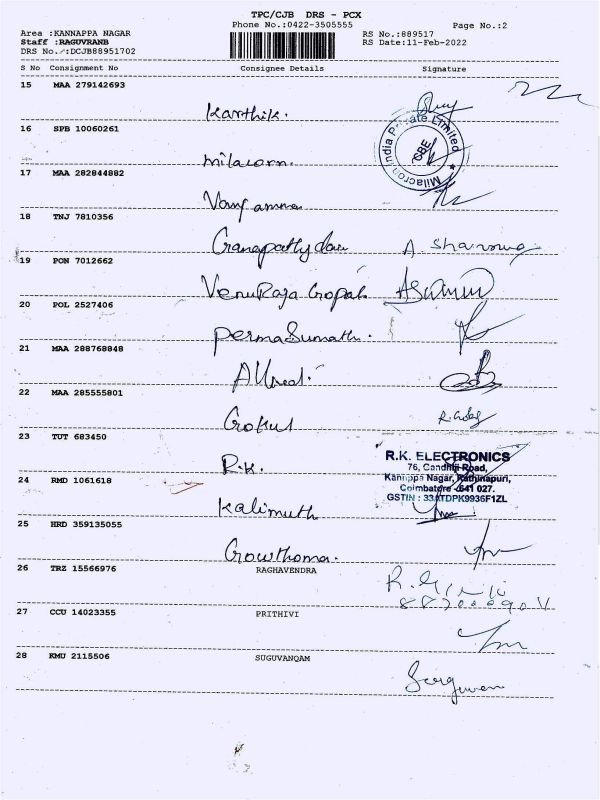 TPC/CJB DRS - PCX
Phone No.:0422-3505555
Page No.:2
Area :KANNAPPA NAGAR
RS No.:889517
Staff :RAGUVRANB
RS Date:11-Feb-2022
DRS No.:DCJB88951702
S No Consignment No Consignee Details Signature
15 MAA 279142693
Karthik.
16 SPB 10060261
Milacorn.
Milacron India Private Limited
CBE
17 MAA 282844882
18 TNJ 7810356
19 PON 7012662
VenuRaja Gopal
20 POL 2527406
PermaSumathi.
21 MAA 288768848
22 MAA 285555801
Gokul
23 TUT 683450
R.K.
R.K. ELECTRONICS
76, Gandhiji Road,
Kannappa Nagar, Rathinapuri,
Coimbatore -641 027.
GSTIN : 33ATDPK9936F1ZL
24 RMD 1061618
Kalimuth
25 HRD 359135055
Gowthoma.
26 TRZ 15566976 RAGHAVENDRA
27 CCU 14023355 PRITHIVI
28 KMU 2115506 SUGUVANQAM